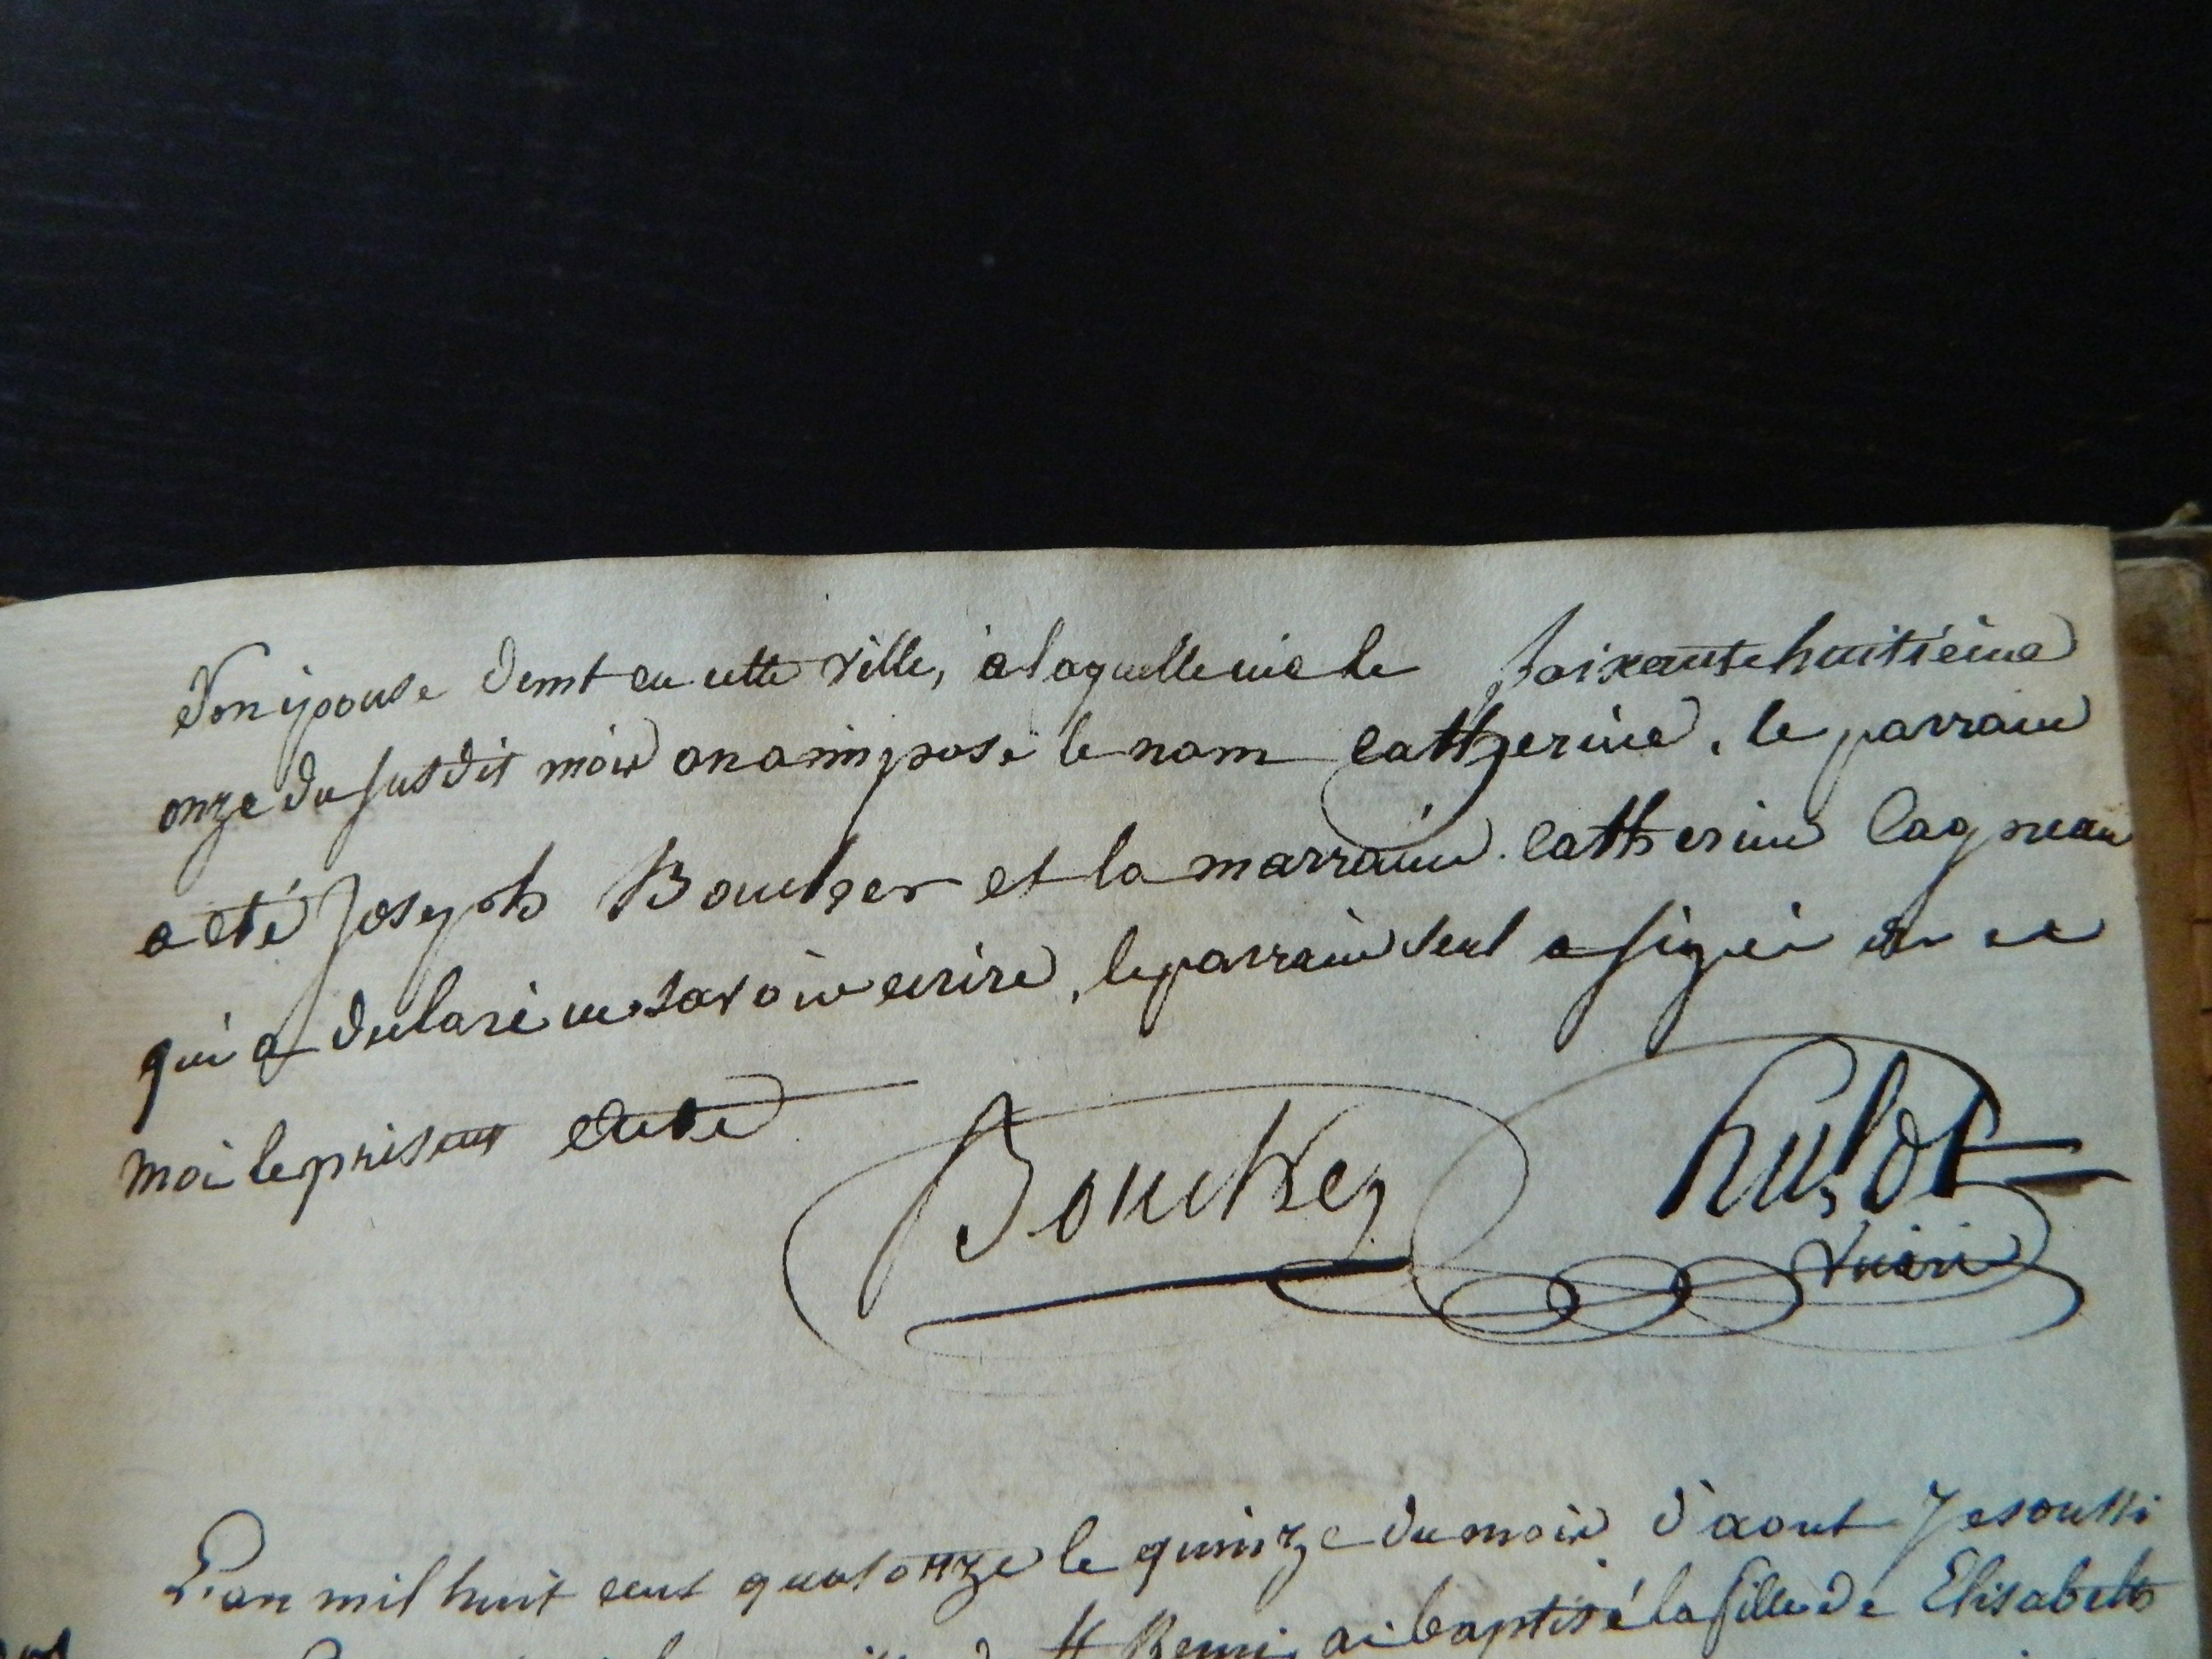 Son épouse demt en cette ville, à laquelle née le soixante huitième
onze du susdit mois on a imposé le nom Catherine, le parrain
a eté Joseph Boucher et la marraine Catherine Lagneau
qui a declaré ne savoir ecrire, le parrain seul a signé
moi le
Bouchez hulot
Vicaire
L'an mil huit cent quatorze le quinze du mois d'aout Je soussi
St Remi, ai baptisé la fille de Elisabeth